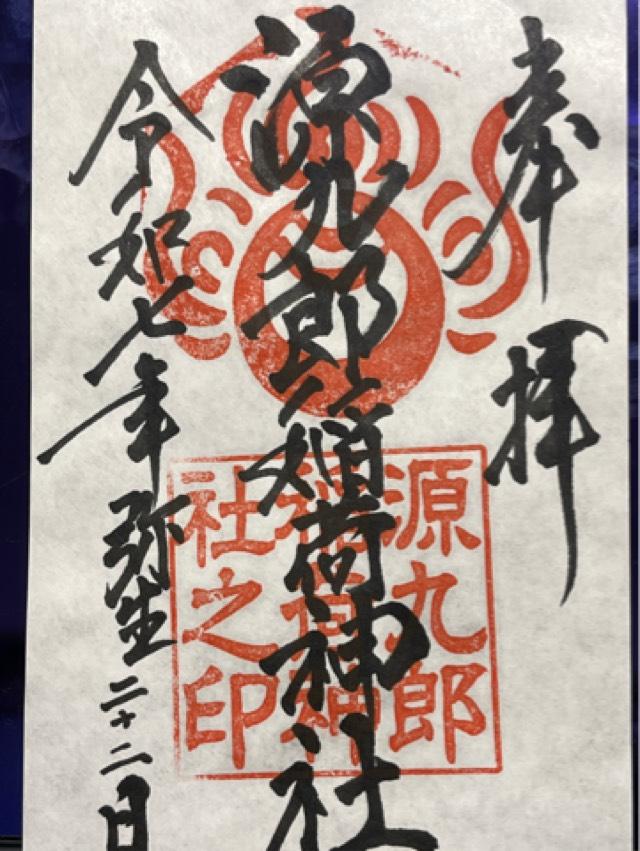 奉拝
源九郎稲荷神社
令和七年弥生二十二日
源九郎
稲荷神
社之印